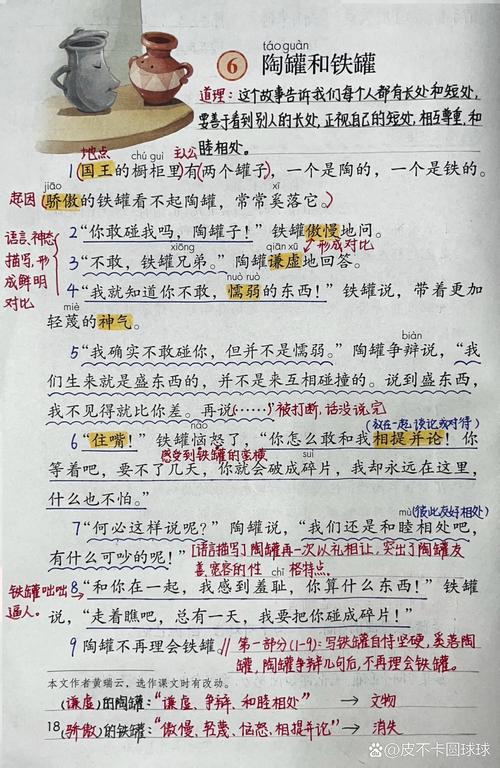 táo guàn
6 陶罐和铁罐
道理：这个故事告诉我们每个人都有长处和短处，
要善于看到别人的长处，正视自己的短处，相互尊重，和
睦相处。
地点 chú guì 主人公
1 国王的橱柜里有(两个罐子)，一个是陶的，一个是铁的。
起因 jiāo xī
(骄傲的铁罐看不起陶罐，常常奚落它。)
2 “你敢碰我吗，陶罐子！” 铁罐傲慢地问。
语言、神态描写，形成鲜明对比
xiōng qiān xū 形成对比
3 “不敢，铁罐兄弟。” 陶罐谦虚地回答。
nuò ruò
4 “我就知道你不敢，懦弱的东西！” 铁罐说，带着更加
miè
轻蔑的神气。
biàn
5 “我确实不敢碰你，但并不是懦弱。” 陶罐争辩说，“我
们生来就是盛东西的，并不是来互相碰撞的。说到盛东西，
我不见得就比你差。再说(……)” 被打断，话没说完
nǎo (放在一起，谈论或对待)
6 “住嘴！” 铁罐恼怒了，“你怎么敢和我相提并论！你
感受到铁罐的蛮横 suì
等着吧，要不了几天，你就会破成碎片，我却永远在这里，
什么也不怕。”
mù (彼此友好相处)
7 “何必这样说呢？” 陶罐说，“我们还是和睦相处吧，
有什么可吵的呢！” [语言描写] 陶罐再一次以礼相让，突出了陶罐友
善、宽容的性格特点。
chǐ
铁罐咄咄逼人。
8 “和你在一起，我感到羞耻，你算什么东西！” 铁罐
说，“走着瞧吧，总有一天，我要把你碰成碎片！”
9 陶罐不再理会铁罐。// 第一部分(1-9)：写铁罐自恃坚硬，奚落陶
罐，陶罐争辩几句后，不再理会铁罐。
本文作者黄瑞云，选作课文时有改动。
(谦虚)的陶罐：“谦虚、争辩、和睦相处” → 文物
18 (骄傲)的铁罐：“傲慢、轻蔑、恼怒、相提并论” → 消失
百家号@皮不卡圆球球